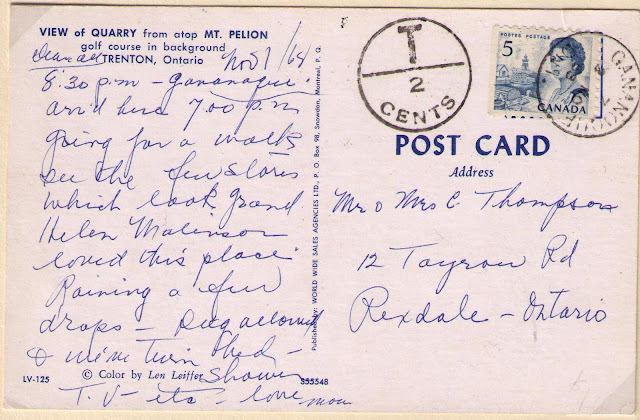 VIEW of QUARRY from atop MT. PELION
golf course in background
TRENTON, Ontario
Dear all Nov 1/68
8:30 p.m - Gananoque.
arrived here 7.00 p.m
going for a walk
see the few stores
which look grand
Helen
loved this place
Raining a few
drops -
& mine twin bed -
© Color by Len Leiffer Shower
LV-125 S55548
T.V - etc - love mom
Published by: WORLD WIDE SALES AGENCIES LTD., P. O. Box 98, Snowdon, Montreal, P. Q.
T
2
CENTS
POSTES POSTAGE
5
CANADA
GANANOQUE
POST CARD
Address
Mr & Mrs C. Thompson
12 Rd
Rexdale - Ontario